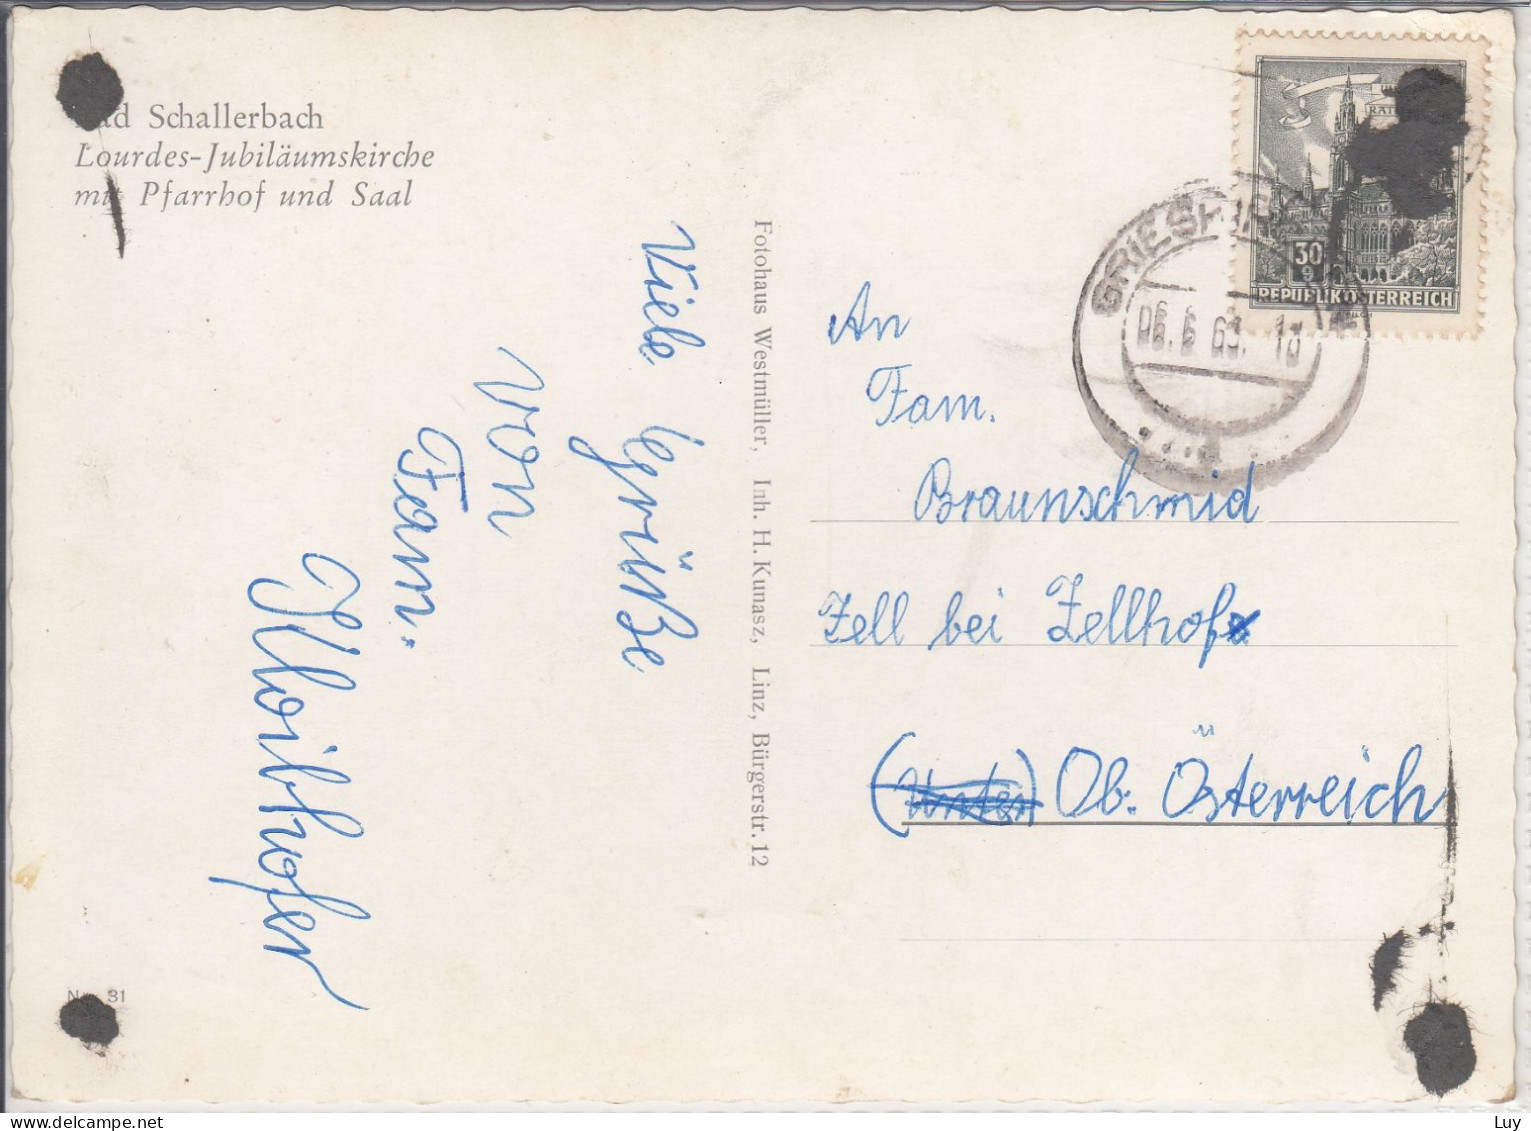 Bad Schallerbach
Lourdes-Jubiläumskirche
mit Pfarrhof und Saal
Viele Grüße
von
Fam.
Kloibhofer
Fotohaus Westmüller, Inh. H. Kunasz, Linz, Bürgerstr. 12
30
g
REPUBLIK ÖSTERREICH
06. 6 6 . 18
An
Fam.
Braunschmid
Zell bei Zellhof
(Unter) Ob. Österreich
Nr. 31
Luy